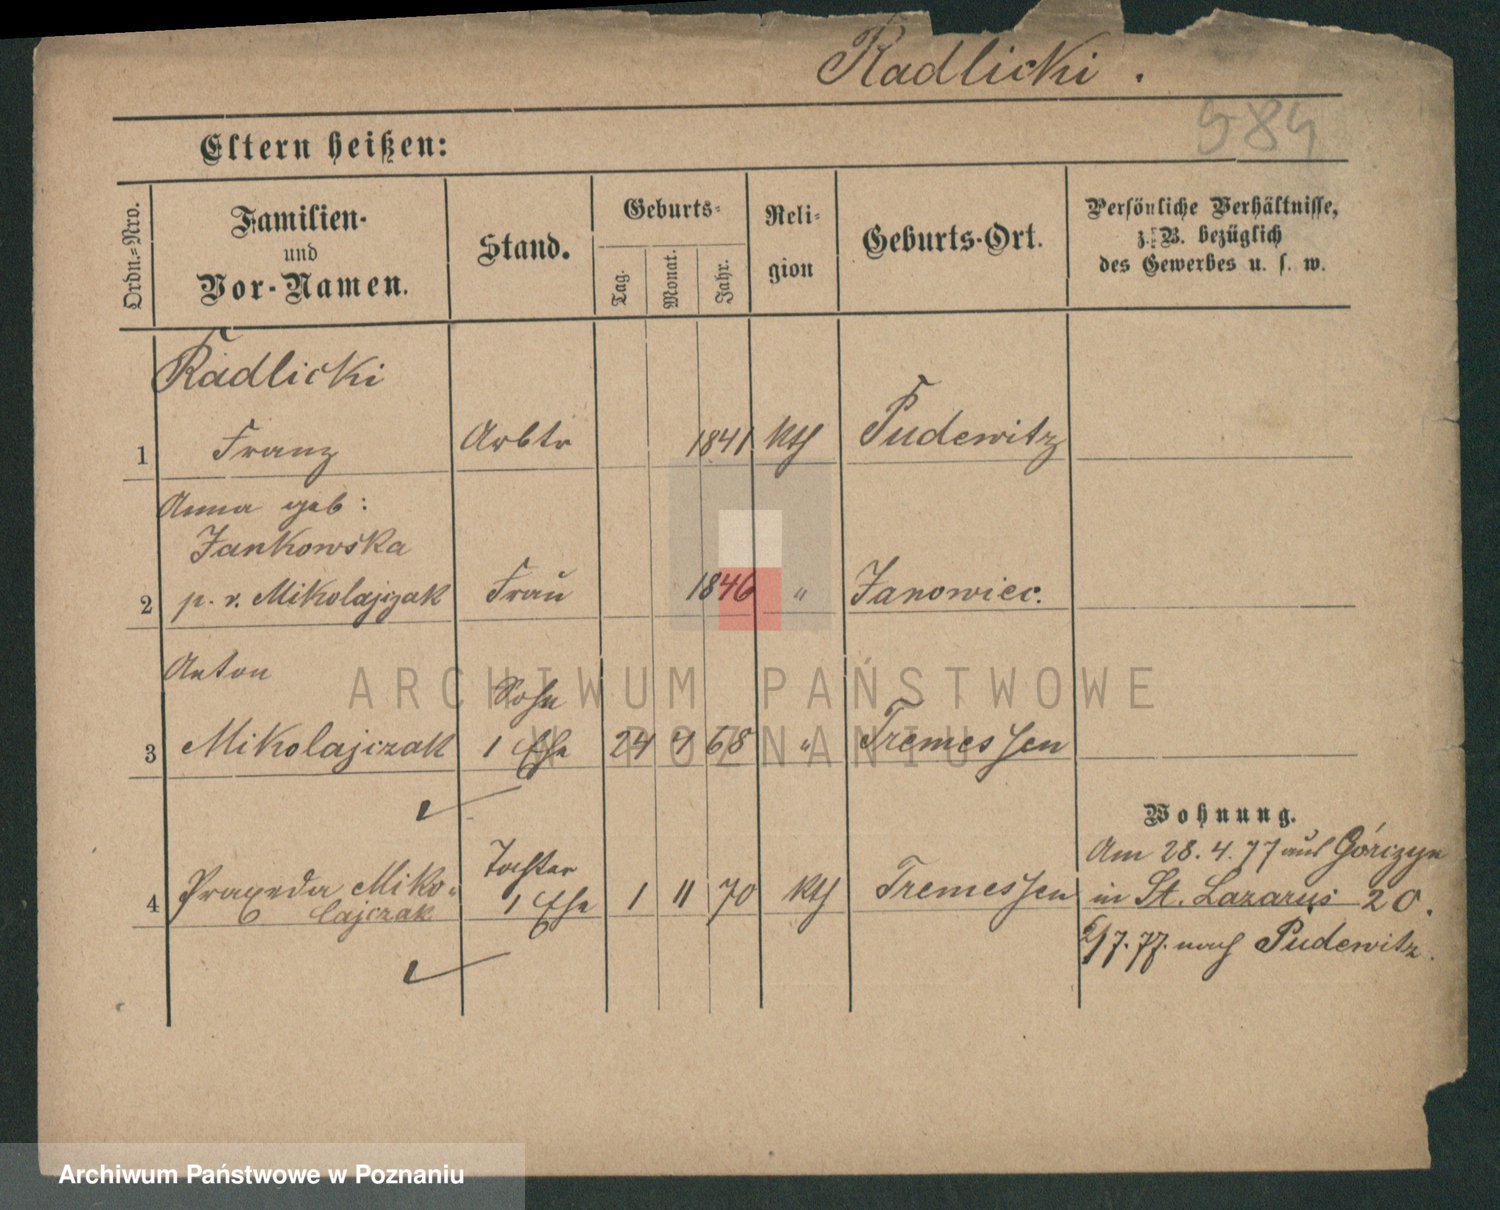 Radlicki.
584
Eltern heißen:
Ordn.=Nro.
Familien-
und
Vor-Namen.
Stand.
Geburts=
Tag.
Monat.
Jahr.
Reli=
gion
Geburts-Ort.
Persönliche Verhältnisse,
z. B. bezüglich
des Gewerbes u. s. w.
Radlicki
1 Franz Arbtr 1841 kth Pudewitz
Anna geb:
Jankowska
2 p. v. Mikolajczak Frau 1846 " Janowiec.
Anton
Sohn
3 Mikolajczak 1 Ehe 24 4 68 " Tremessen
Wohnung.
Am 28.4.77 aus Górczyn
Tochter
4 Praxeda Miko- 1 Ehe 1 11 70 kth Tremessen in St. Lazarus 20.
lajczak
/7.77. nach Pudewitz.
ARCHIWUM PAŃSTWOWE
W POZNANIU
Archiwum Państwowe w Poznaniu